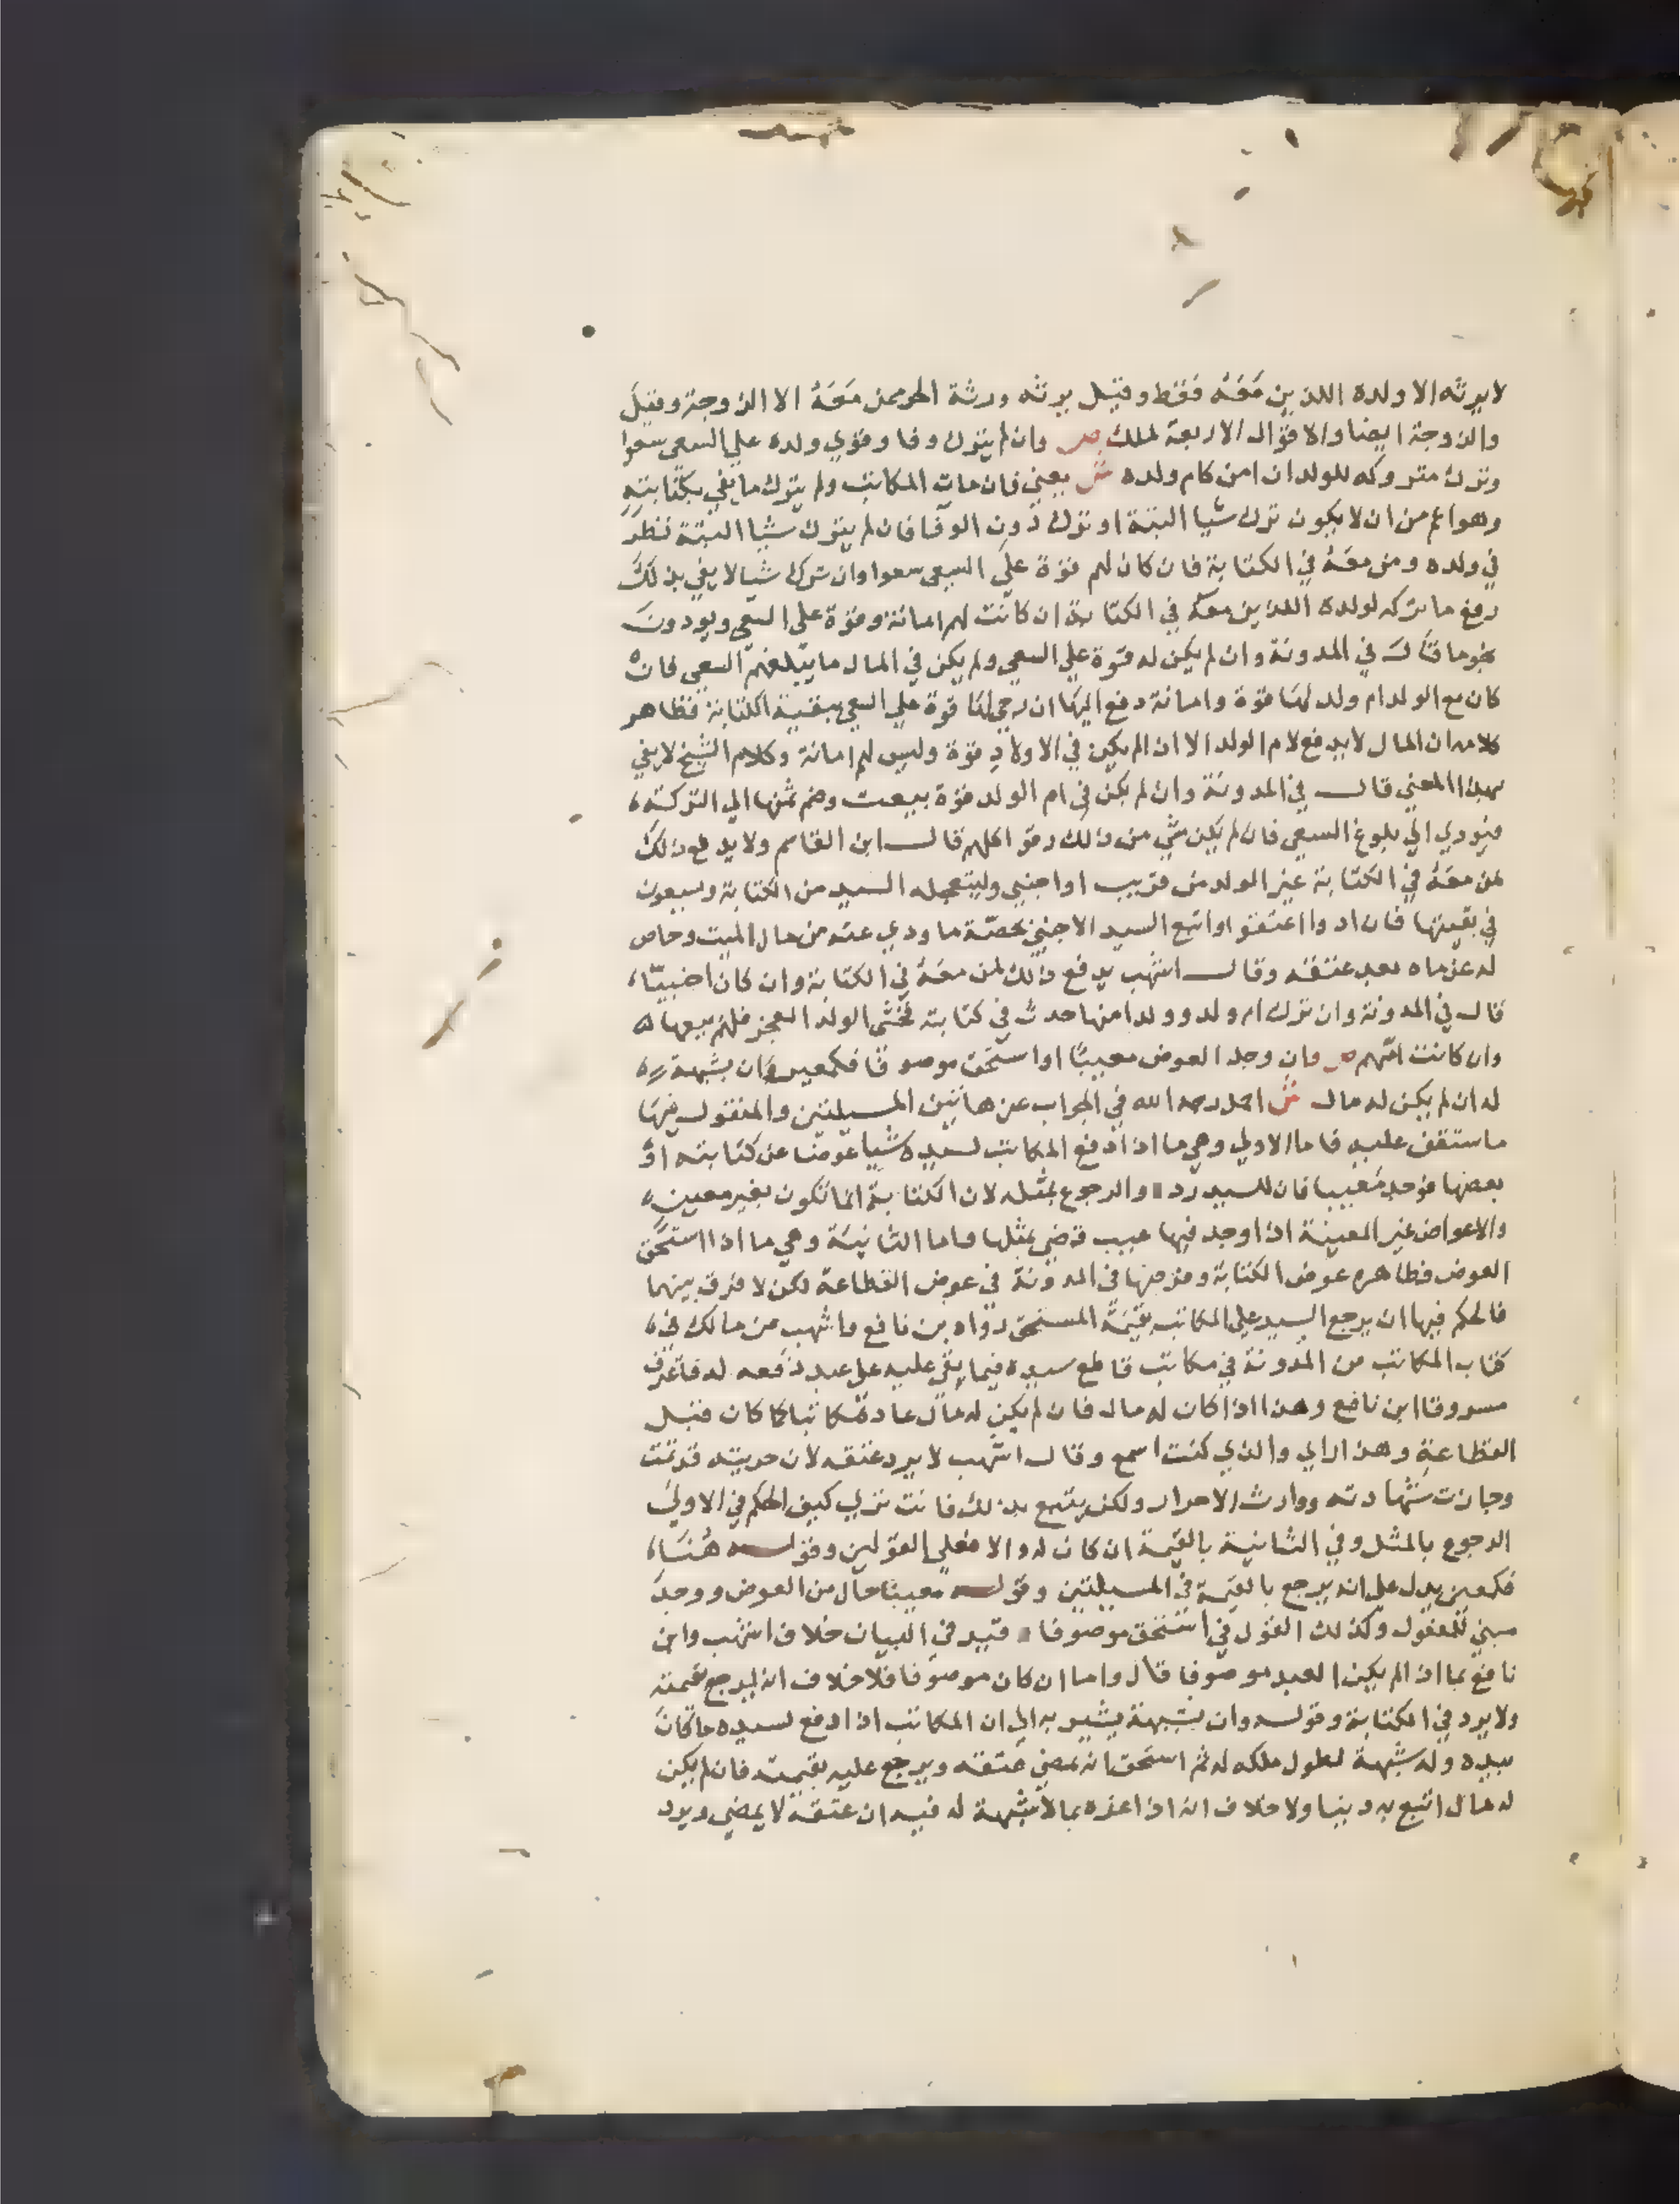 لا يرثه الا ولده اللذين معَهُ فقط وقيل يرثه ورثة الحر ممن معَهُ الا الزوجة وقيل
والزوجة ايضا والاقوال الاربعة لملك ص وان لم يترك وفا وقوي ولده علي السعي سعوا
وترك متروكه للولد ان امن كام ولده ش يعني فان مات المكاتب ولم يترك ما يفي بكتابته
وهو اعم من ان لا يكون ترك شيا البتة او ترك دون الوفا فان لم يترك شيا البتة نظر
في ولده ومن معَهُ في الكتابة فان كان لهم قوة علي السعي سعوا وان ترك شيا لا يفي بذلك
دفع ما تركه لولده اللذين معه في الكتابة ان كانت لهم امانة وقوة علي السعي ويودون
نجوما قال في المدونة وان لم يكن له قوة علي السعي ولم يكن في المال ما يبلغهم السعي فان
كان مع الولد ام ولد لها قوة وامانة دفع اليها ان رجي لها قوة علي السعي ببقية الكتابة فظاهر
كلامه ان المال لا يدفع لام الولد الا ان لم يكن في الاولاد قوة وليس لهم امانة وكلام الشيخ لا يفي
بهذا المعني قال في المدونة وان لم يكن في ام الولد قوة بيعت وضم ثمنها الي التركة
فيودي الي بلوغ السعي فان لم يكن شي من ذالك رقوا كلهم قال ابن القاسم ولا يدفع ذلك
لمن معَهُ في الكتابة غير الولد من قريب او اجنبي وليتعجله السيد من الكتابة ويسعون
في بقيتها فان ادوا اعتقوا واتبع السيد الاجنبي بحصّة ما ودي عنه من مال الميت وحاص
له غرماه بعد عتقه وقال اشهب يدفع ذالك لمن معَهُ في الكتابة وان كان اجنبيّا
قال في المدونة وان ترك ام ولد وولدا منها حدث في كتابته فخشي الولد العجز فلهم بيعها
وان كانت امّهم ص وان وجد العوض معيبًا او استحَق موصوفًا فكمعين وان بشبهة
له ان لم يكن له مال ش اجمل رحمه الله في الجواب عن هاتين المسيلتين والمنقول فيهَا
ما ستقف عليه فاما الاولي وهي ما اذا دفع المكاتب لسيده شيا عوضا عن كتابته اوْ
بعضها فوجد معيبا فان للسيد رده والرجوع بمثله لان الكتابة انما تكون بغير معين
والاعواض غير المعينة اذا وجد فيها عيب قضي بمثلها واما الثانيَة وهي ما اذا استحَق
العوض فظاهره عوض الكتابة وفرضها في المدونة في عوض القطاعة لكن لا فرق بينهما
فالحكم فيها ان يرجع السيد علي المكاتب بقيمَة المستحق رواه بن نافع واشهب عن مالك في
كتاب المكاتب من المدونة في مكاتب قاطع سيده فيما بقي عليه علي عبد دفعه له فاعترف
مسروقا ابن نافع وهذا اذا كان له مال فان لم يكن له مال عاد مكاتبا كما كان قبل
القطاعة وهذا رايي والذي كنت اسمع وقال اشهب لا يرد عتقه لان حريته قد تمت
وجازت شهادته ووارث الاحرار ولكن يتبع بذلك فانت تري كيف الحكم في الاولي
الرجوع بالمثل وفي الثانية بالقيمة ان كان له والا فعلي القولين وقوله هُنَا
فكمعين يدل علي انه يرجع بالقيمة في المسيلتين وقوله معيبًا حال من العوض ووجدَ
مبني للمفعول وكذلك القول في استحق موصوفا قيد في البيان خلاف اشهب وابن
نافع بما اذا لم يكن العبد موصوفا قال واما ان كان موصوفا فلا خلاف انه ليرجع بقيمته
ولا يرد في الكتابة وقوله وان بشبهة يشير به الي ان المكاتب اذا دفع لسيده ما كان
بيده وله شبهة لطول ملكه له ثم استحق انه يمضي عتقه ويرجع عليه بقيمته فان لم يكن
له مال اتبع به دينا ولا خلاف انه اذا غره بما لا شبهة له فيه ان عتقه لا يمضي ويرد